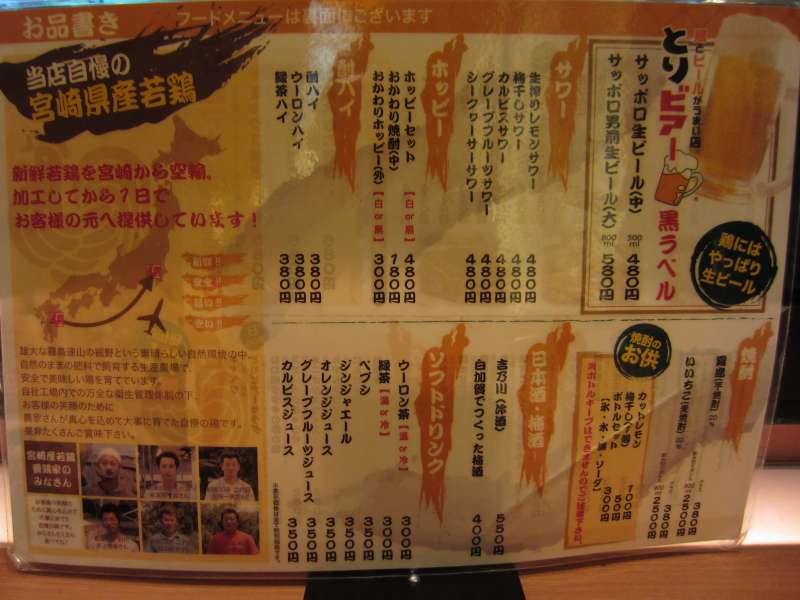 お品書き
フードメニューは裏面にございます
当店自慢の
宮崎県産若鶏
新鮮若鶏を宮崎から空輸。
加工してから1日で
お客様の元へ提供しています！
雄大な霧島連山の裾野という素晴らしい自然環境の中、
自然のままの肥料で飼育する生産農場で、
安全で美味しい鶏を育てています。
自社工場内での万全な衛生管理体制の下、
お客様の笑顔のために
農家さんが真心を込めて大事に育てた自慢の鶏です。
是非たくさんご賞味下さい。
宮崎産若鶏
養鶏家の
みなさん
鶏とビールがうまい店
とりビアー
黒ラベル
サッポロ生ビール(中) 500ml 480円
サッポロ男前生ビール(大) 800ml 580円
鶏には
やっぱり
生ビール
サワー
生搾りレモンサワー 480円
梅干しサワー 480円
カルピスサワー 480円
グレープフルーツサワー 480円
シークヮーサーサワー 480円
ホッピー
ホッピーセット【白or黒】 480円
おかわり焼酎(中) 180円
おかわりホッピー(外)【白or黒】 300円
酎ハイ
酎ハイ 380円
ウーロンハイ 380円
緑茶ハイ 380円
焼酎
霧島(芋焼酎)
380円
2500円
いいちこ(麦焼酎)
380円
2500円
焼酎の
お供
カットレモン 100円
梅干し(1個) 50円
ボトルセット 300円
【氷・水・湯・ソーダ】
※ボトルキープはできませんのでご注意下さい。
日本酒・梅酒
吉乃川(冷酒) 550円
白加賀でつくった梅酒 400円
ソフトドリンク
ウーロン茶【温or冷】 300円
緑茶【温or冷】 300円
ペプシ 350円
ジンジャエール 350円
オレンジジュース 350円
グレープフルーツジュース 350円
カルピスジュース 350円